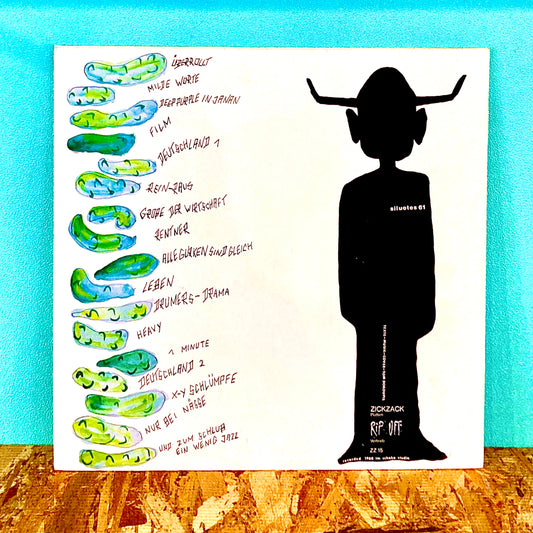 ÜBERROLLT
MILDE WORTE
DEEP PURPLE IN JAPAN
FILM
DEUTSCHLAND 1
REIN-RAUS
GRÖßE DER WIRTSCHAFT
RENTNER
ALLE GURKEN SIND GLEICH
LEBEN
DRUMERS-DRAMA
HEAVY
1 MINUTE
DEUTSCHLAND 2
X-Y SCHLÜMPFE
NUR BEI NÄSSE
UND ZUM SCHLUß
EIN WENIG JAZZ
siluetes 61
ZICKZACK
Platten
RIP OFF
Vertrieb
ZZ 15
recorded 1980 im studio